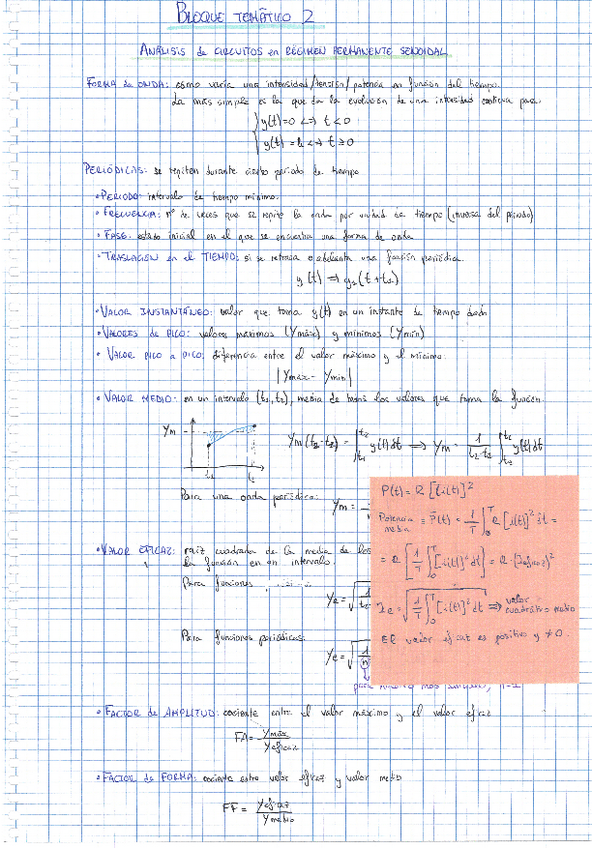 BLOQUE TEMÁTICO 2
ANÁLISIS de CIRCUITOS en RÉGIMEN PERMANENTE SENOIDAL
FORMA de ONDA: cómo varía una intensidad/tensión/potencia en función del tiempo.
La más simple es la que da la evolución de una intensidad continua pura.
y(t)=0 <=> t<0
y(t)=k <=> t≥0
PERIÓDICAS: se repiten durante cierto periodo de tiempo
• PERIODO: intervalo de tiempo mínimo.
• FRECUENCIA: nº de veces que se repite la onda por unidad de tiempo (inversa del periodo)
• FASE: estado inicial en el que se encuentra una forma de onda
• TRASLACIÓN en el TIEMPO: si se retrasa o adelanta una función periódica.
y(t) => y₂(t+t₂)
• VALOR INSTANTÁNEO: valor que toma y(t) en un instante de tiempo dado
• VALORES de PICO: valores máximos (Ymáx) y mínimos (Ymín)
• VALOR PICO a PICO: diferencia entre el valor máximo y el mínimo.
|Ymáx - Ymín|
• VALOR MEDIO: en un intervalo (t₁,t₂), media de todos los valores que toma la función.
Ym
t₁ t₂
Ym(t₂-t₁) = ∫ y(t)dt => Ym = 1/(t₂-t₁) ∫ y(t)dt
Para una onda periódica: Ym =
P(t) = R [i(t)]²
Potencia media = P(t) = 1/T ∫₀ᵀ R [i(t)]² dt =
= R [1/T ∫₀ᵀ [i(t)]² dt] = R·(Ieficaz)²
Ie = √(1/T ∫₀ᵀ [i(t)]² dt) => valor cuadrático medio
El valor eficaz es positivo y ≠0.
• VALOR EFICAZ: raíz cuadrada de la media de los
la función en un intervalo.
Para funciones
Ye = √
Para funciones periódicas:
Ye = √
para
• FACTOR de AMPLITUD: cociente entre el valor máximo y el valor eficaz
FA = Ymáx / Yeficaz
• FACTOR de FORMA: cociente entre valor eficaz y valor medio
FF = Yeficaz / Ymedio